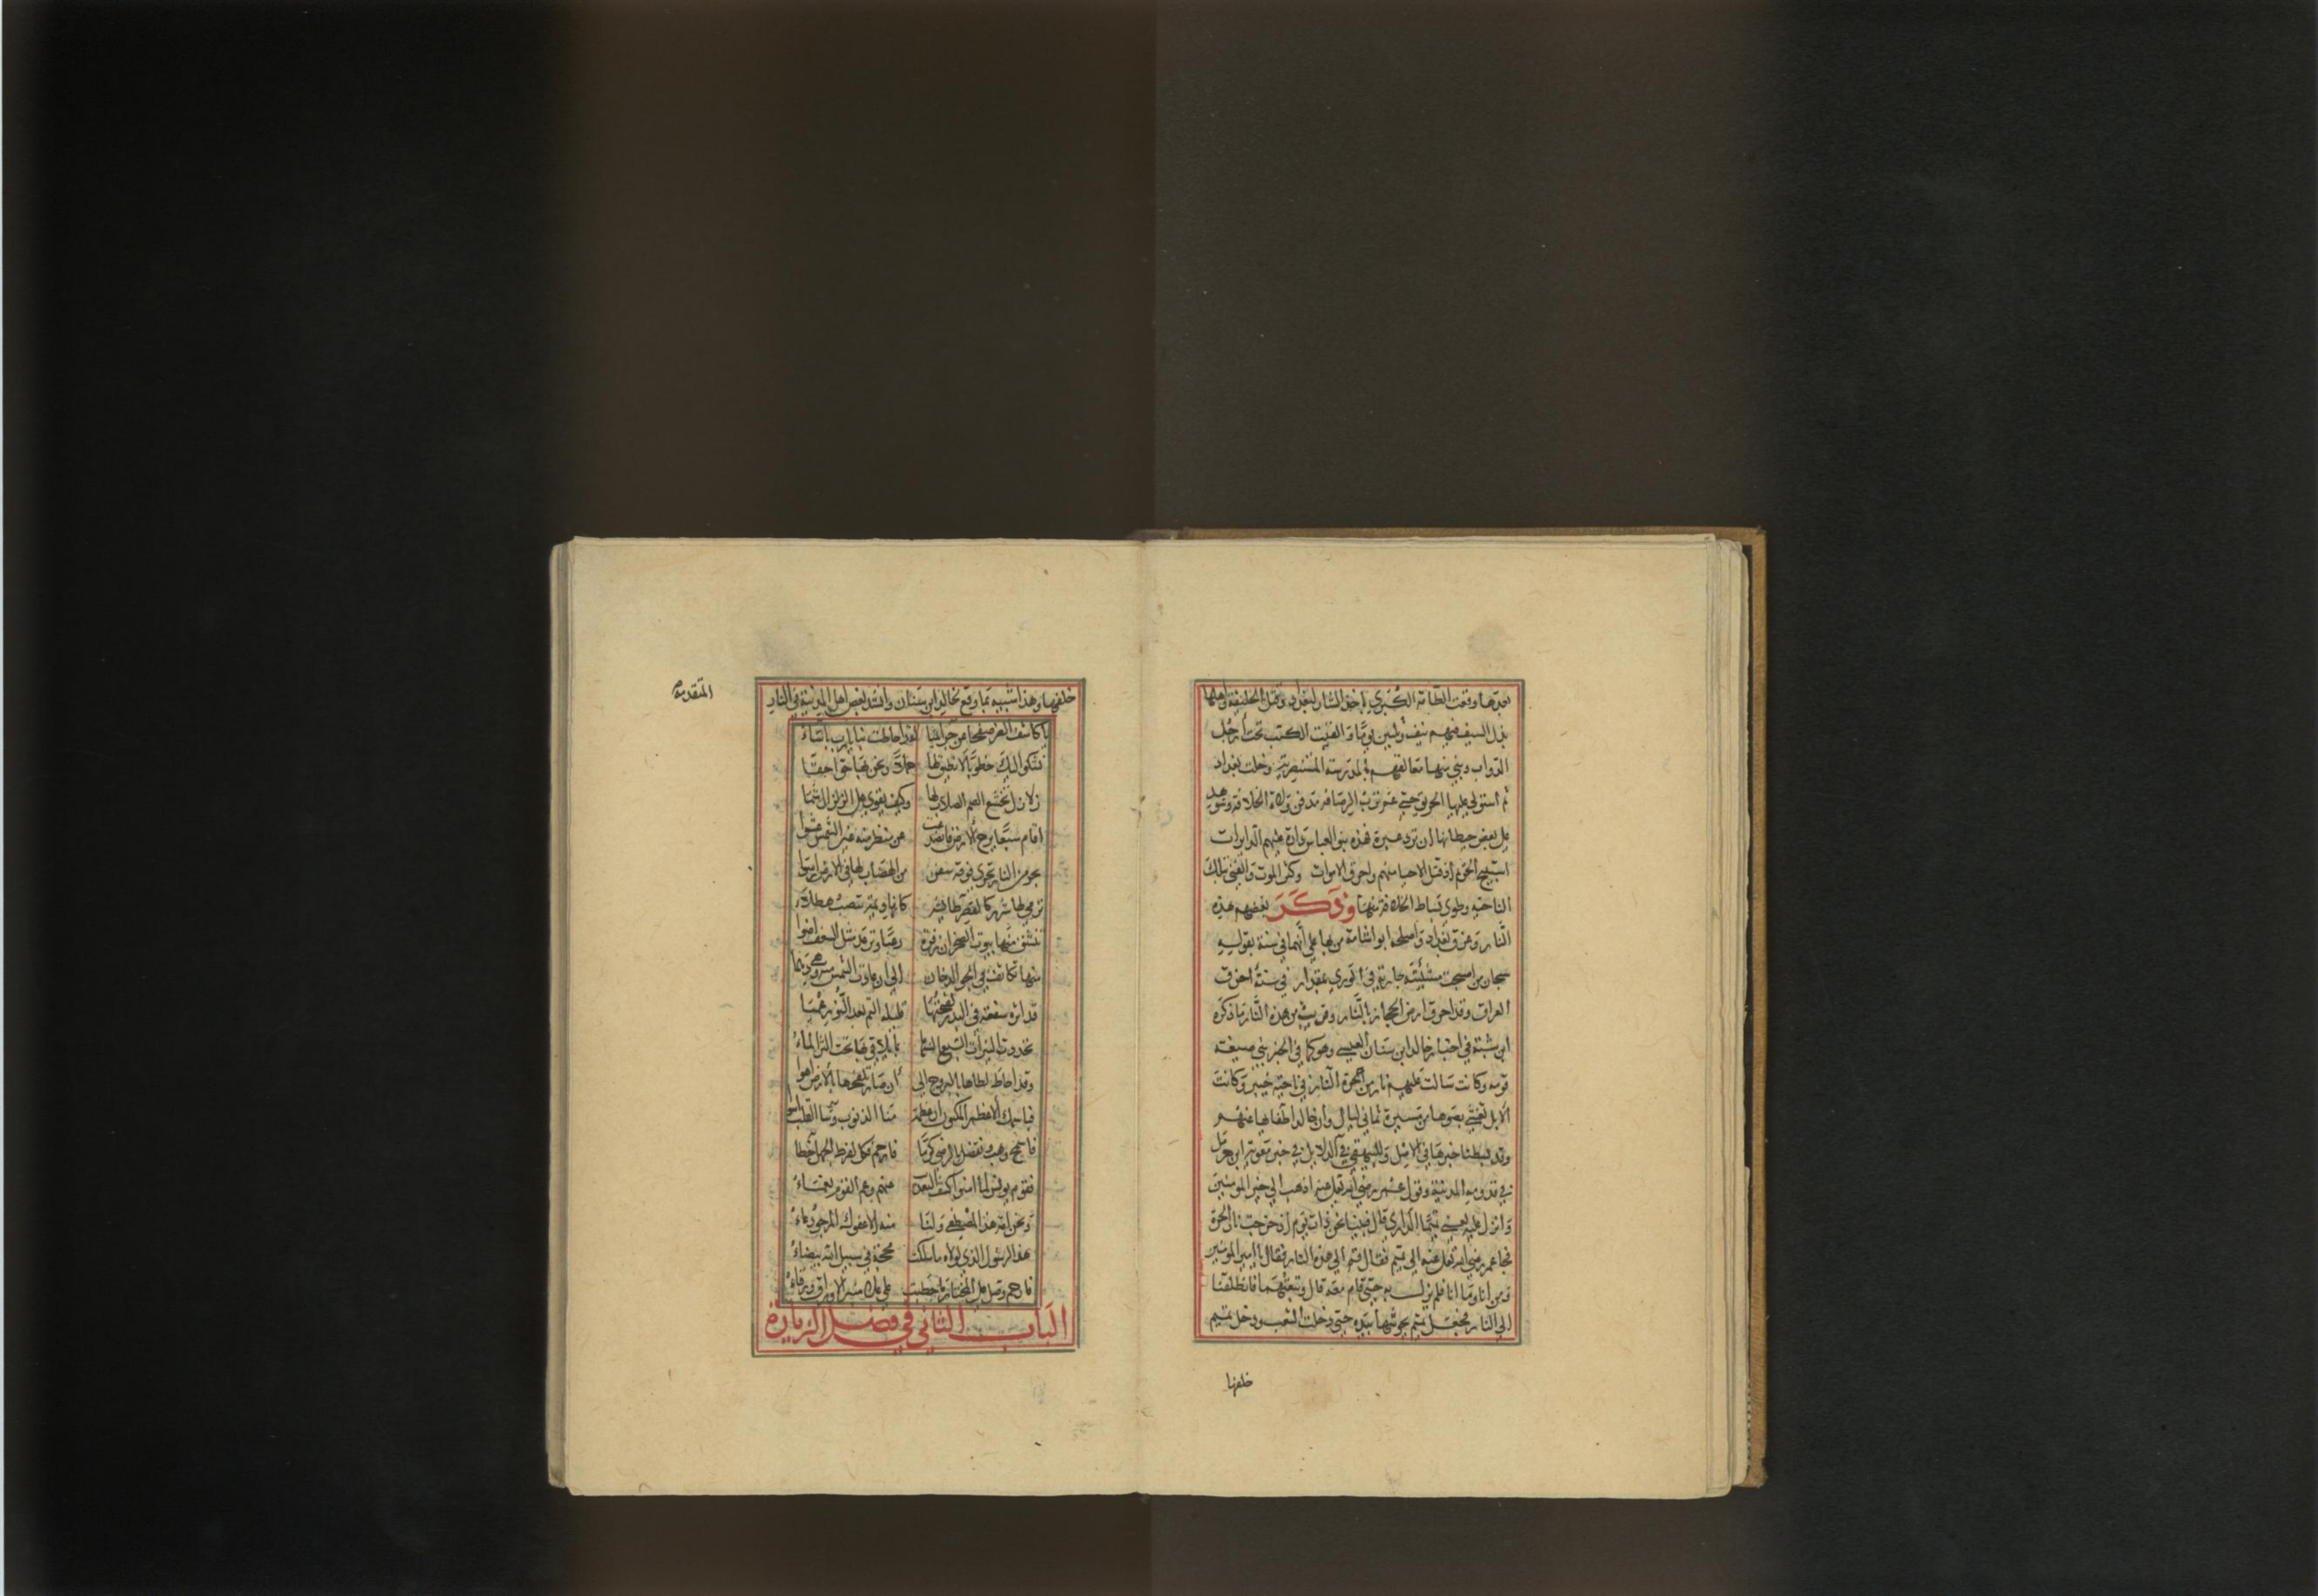 بعدها وقعت الطامة الكبرى باخذ التتار لبغداد وقتل الخليفة واهلها
بذل السيف فيهم نيف وثلثين يوما والقيت الكتب تحت ارجل
الدواب وبني منها معالفهم في المدرسة المستنصرية وخلت بغداد
ثم استولى عليها الحريق حتى عم ترب الرصافة مدفن ولاة الخلافة وشوهد
على بعض حيطانها ان ترد عبرة فهذه بنو العباس دارت عليهم الدايرات
استبيح الحريم اذ قتل الاحيا منهم واحرق الاموات وكثر الموت والفنى بتلك
الناحية وطوى بساط الخلافة منها وذكر بعضهم هذه
النار وغرق بغداد واصلحه ابو شامة منبها على انهما في سنة بقوله
سبحان من اصبحت مشيئته جارية في الورى بمقدار في سنة اغرق
العراق وقد احرق ارض الحجاز بالنار وقريب من هذه النار ما ذكره
ابن شبة في اخبار خالد ابن سنان العبسي وهو كما في الخبر نبي ضيعه
قومه وكانت سالت عليهم نار من حرة النار في ناحية خيبر وكانت
الابل تغشى بضوها من مسيرة ثماني ليال وان خالد اطفاها عنهم
وقد بسطنا خبرها في الاصل وللبيهقي في الدلايل في خبر معوية ابن حرمل
في قدومه المدينة وقول عمر رضي الله تعالى عنه اذهب الى خير المومنين
وانزل عليه يعني تميما الداري قال فبينا نحن ذات يوم اذ خرجت نار الحرة
فجا عمر رضي الله تعالى عنه الى تميم فقال قم الى هذه النار فقال يا امير المومنين
ومن انا وما انا فلم يزل به حتى قام معه قال وتبعتهما فانطلقنا
الى النار فجعل تميم يحوشها بيده حتى دخلت الشعب ودخل تميم
خلفها
المتقدمه
خلفها وهذا شبيه بما وقع لخالد ابن سنان وانشد بعض اهل المدينة في النار
يا كاشف الضر صفحا عن جرايمنا لقد احاطت بنا يا رب باساء
نشكوا اليك خطوبا لا نطيق لها حملا ونحن بها حقا احقا
زلازل تخشع الصم الصلاد لها وكيف يقوى على الزلزال شما
اقام سبعا يرج الارض فانصدعت عن منظر منه عين الشمس عشوا
بحر من النار تجري فوقه سفن من الهضاب لها في الارض ارسا
ترمي لها شررا كالقصر طايشة كانها ديمة تنصب هطلاء
تنشق منها بيوت الصخر ان زفرت رعبا وترعد مثل السعف اضوا
منها تكاثف في الجو الدخان الى ان عادت الشمس منه وهي دهما
قد اثرت سفعة في البدر لفحتها فليلة التم بعد النور عميا
تحدث النيرات السبع السنها بما يلاقي بها تحت الثرى الماء
وقد احاط لظاها بالبروج الى ان صار يلفحها بالارض اهوا
فباسمك الاعظم المكنون ان عظمت منا الذنوب وسا القلب اسوا
فاسمح وهب وتفضل بالرضى كرما فارحم فكل لفرط الجهل اخطا
فقوم يونس لما امنوا كشف العذاب عنهم وعم القوم نعماء
ونحن امة هذا المصطفى ولنا منه الى عفوك المرجو دعاء
هذا الرسول الذي لولاه ما سلكت محجة في سبيل الله بيضاء
فارحم وصل على المختار ما خطبت على علا منبر الاوراق ورقاء
الباب الثاني في فضل الزيارة